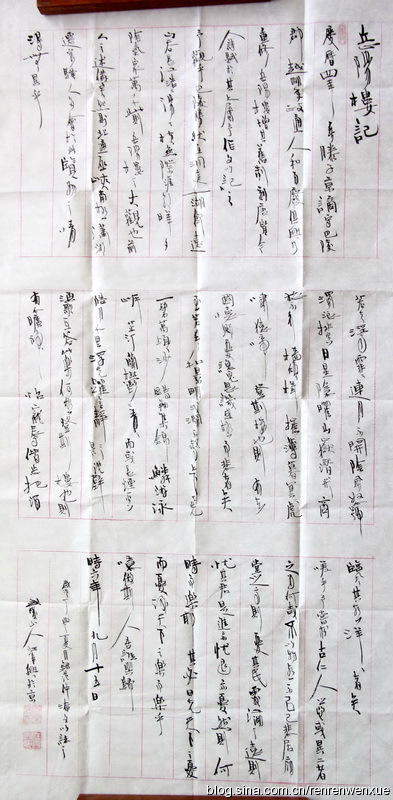 岳陽樓記
慶曆四年春滕子京謫守巴陵
郡越明年政通人和百廢俱興乃
重修岳陽樓增其舊制刻唐賢今
人詩賦於其上屬予作文以記之
予觀夫巴陵勝狀在洞庭一湖銜遠
山吞長江浩浩湯湯橫無際涯朝暉夕
陰氣象萬千此則岳陽樓之大觀也前
人之述備矣然則北通巫峽南極瀟湘
遷客騷人多會於此覽物之情
得無異乎
若夫霪雨連月不開陰風怒號
濁浪排空日星隱曜山岳潛形商
旅不行檣傾楫摧薄暮冥冥虎
嘯猿啼登斯樓也則有去
國懷鄉憂讒畏譏感極而悲者矣
至若春和景明波瀾不驚上下天光
一碧萬頃沙鷗翔集錦鱗游泳
岸芷汀蘭青而或長煙一空
皓月千里浮光躍金靜影沉璧
漁歌互答此樂何極登斯樓也則
有心曠神怡寵辱偕忘把酒
臨風其喜洋洋者矣
嗟夫予嘗求古仁人之心或異二者
之為何哉不以物喜不以己悲居廟
堂之高則憂其民處江湖之遠則
憂其君是進亦憂退亦憂然則何
時而樂耶其必曰先天下之憂
而憂後天下之樂而樂乎
噫微斯人吾誰與歸
時六年九月十五日
blog.sina.com.cn/renrenwenxue